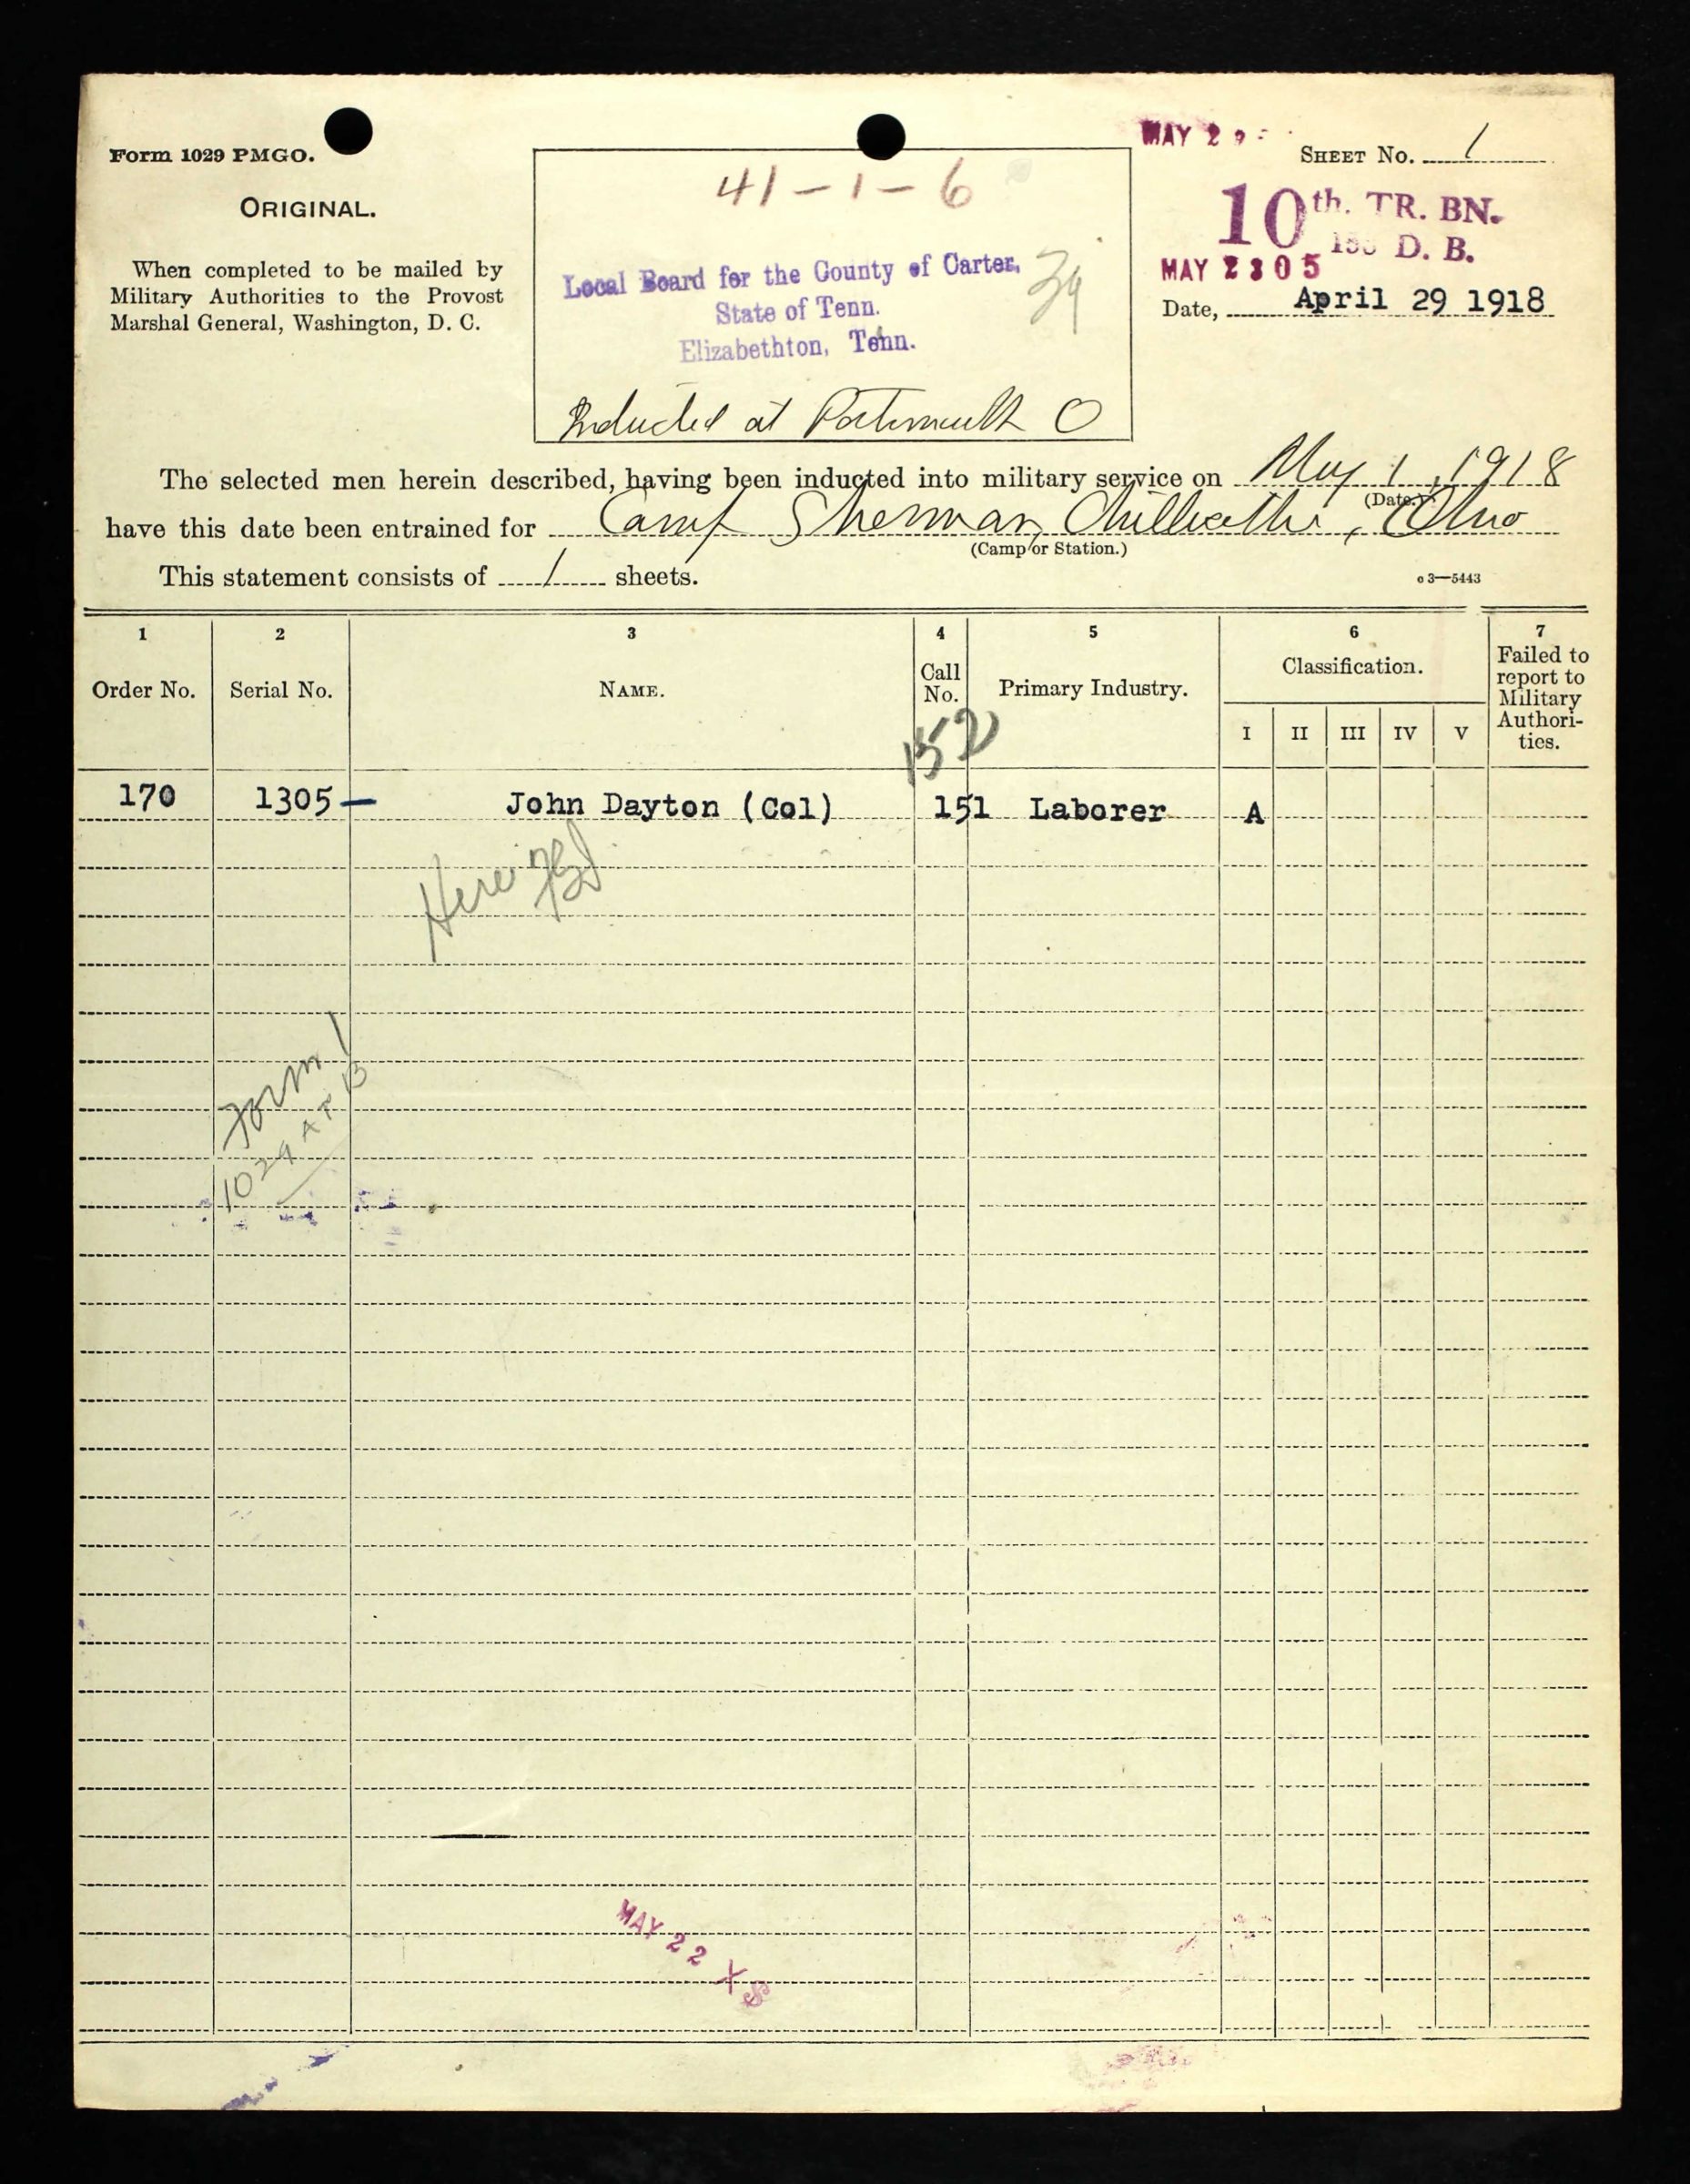 Form 1029 PMGO.
ORIGINAL.
When completed to be mailed by
Military Authorities to the Provost
Marshal General, Washington, D. C.
41-1-6
Local Board for the County of Carter,
State of Tenn.
Elizabethton, Tenn.
39
Inducted at Portsmouth O
MAY 2
SHEET No. 1
10th. TR. BN.
D. B.
MAY 2305
Date, April 29 1918
The selected men herein described, having been inducted into military service on May 1, 1918
(Date.)
have this date been entrained for Camp Sherman, Chillicothe, Ohio
(Camp or Station.)
This statement consists of 1 sheets.
c 3—5443
1 2 3 4 5 6 7
Order No. Serial No. NAME. Call No. Primary Industry. Classification. Failed to report to Military Authorities.
I II III IV V
152
170 1305— John Dayton (Col) 151 Laborer A
Form 1
1029 A T B
MAY 22 X 8